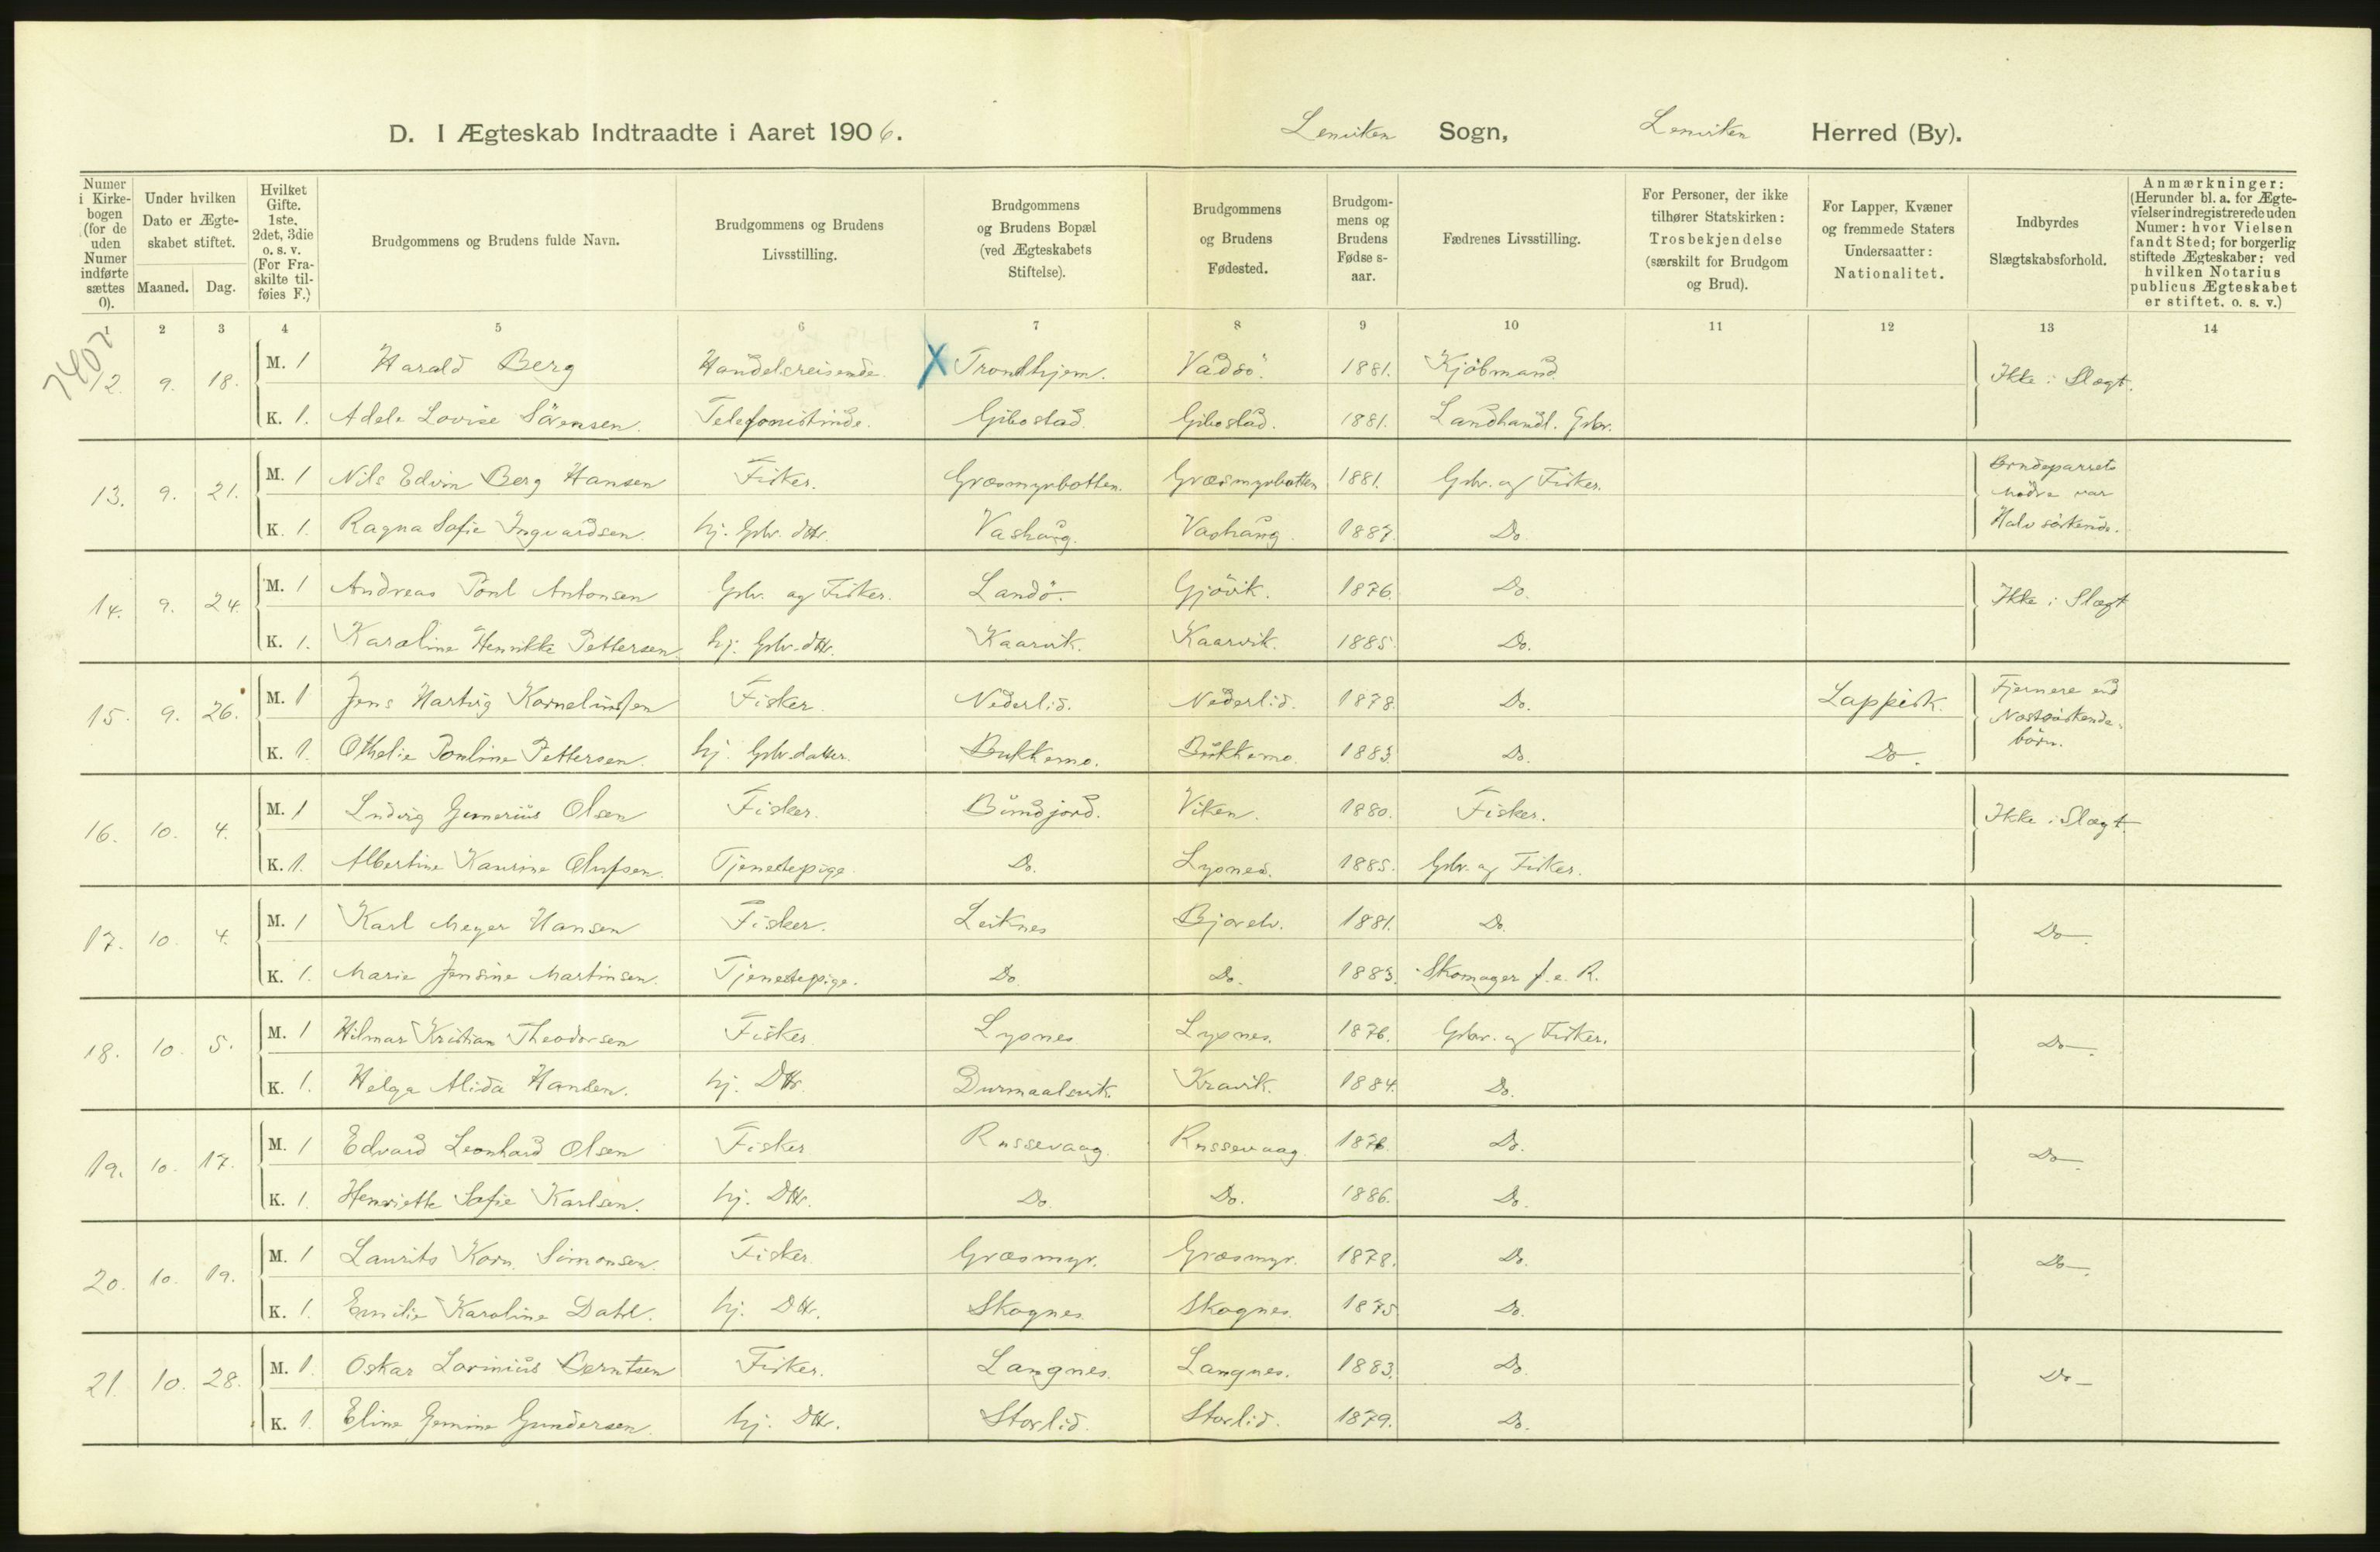 D. I Ægteskab Indtraadte i Aaret 1906. Lenviken Sogn, Lenviken Herred (By).
Numer i Kirkebogen (for de uden Numer indførte sættes 0).
Under hvilken Dato er Ægteskabet stiftet.
Maaned. Dag.
Hvilket Gifte. 1ste, 2det, 3die o. s. v. (For Fraskilte tilføies F.)
Brudgommens og Brudens fulde Navn.
Brudgommens og Brudens Livsstilling.
Brudgommens og Brudens Bopæl (ved Ægteskabets Stiftelse).
Brudgommens og Brudens Fødested.
Brudgommens og Brudens Fødse s-aar.
Fædrenes Livsstilling.
For Personer, der ikke tilhører Statskirken: Trosbekjendelse (særskilt for Brudgom og Brud).
For Lapper, Kvæner og fremmede Staters Undersaatter: Nationalitet.
Indbyrdes Slægtskabsforhold.
Anmærkninger: (Herunder bl. a. for Ægtevielser indregistrerede uden Numer: hvor Vielsen fandt Sted; for borgerlig stiftede Ægteskaber: ved hvilken Notarius publicus Ægteskabet er stiftet. o. s. v.)
1 2 3 4 5 6 7 8 9 10 11 12 13 14
7402
12. 9. 18. M. 1 Harald Berg Handelsreisende. X Trondhjem. Vadsö. 1881. Kjöbmand. Ikke i Slægt.
K. 1. Adele Lovise Sörensen. Telefonistinde. Gibostad. Gibostad. 1881. Landhandl. Gbr.
13. 9. 21. M. 1 Nils Edvin Berg Hansen Fisker. Græsmyrbotten. Græsmyrbotten 1881. Gbr. og Fisker. Brudeparrets Mødre var Halvsöskende.
K. 1. Ragna Sofie Ingvardsen. hj. Gbr. dttr. Vashaug. Vashaug. 1887. Do.
14. 9. 24. M. 1 Andreas Poul Antonsen Gbr. og Fisker. Landö. Gjövik. 1876. Do. Ikke i Slægt
K. 1. Karoline Henrikke Pettersen. hj. Gbr. dttr. Kaarvik. Kaarvik. 1885. Do.
15. 9. 26. M. 1 Jens Hartvig Kornelinssen Fisker. Nederlid. Nederlid. 1878. Do. Lappisk. Fjernere end Næstsöskendebörn.
K. 1. Othelie Pouline Pettersen. hj. Gbr. datter. Bukkemo. Bukkemo. 1883. Do. Do.
16. 10. 4. M. 1 Ludvig Gunerius Olsen Fisker. Bundjord. Viken. 1880. Fisker. Ikke i Slægt
K. 1. Albertine Kaurine Olufsen. Tjenestepige. Do. Lysnes. 1885. Gbr. og Fisker.
17. 10. 4. M. 1 Karl Meyer Hansen Fisker. Leiknes Bjorelv. 1881. Do. Do.
K. 1. Marie Jensine Martinsen. Tjenestepige. Do. Do. 1883. Skomager f. e. R.
18. 10. 5. M. 1 Hilmar Kristian Theodorsen Fisker Lysnes Lysnes. 1876. Gbr. og Fisker. Do.
K. 1. Helga Alida Hansen. hj. Dttr. Durmaalsvik. Kravik. 1884. Do.
19. 10. 17. M. 1 Edvard Leonhard Olsen Fisker Russevaag. Russevaag. 1876. Do. Do.
K. 1. Henriette Sofie Karlsen. hj. Dttr. Do. Do. 1886. Do.
20. 10. 19. M. 1 Laurits Korn. Simonsen. Fisker Græsmyr. Græsmyr. 1878. Do. Do.
K. 1. Emilie Karoline Dahl. hj. Dttr. Skognes. Skognes. 1875 Do.
21. 10. 28. M. 1. Oskar Lavinius Berntsen Fisker. Langnes. Langnes. 1883. Do. Do
K. 1. Eline Jemine Gundersen. hj. Dttr. Storlid. Storlid. 1879. Do.